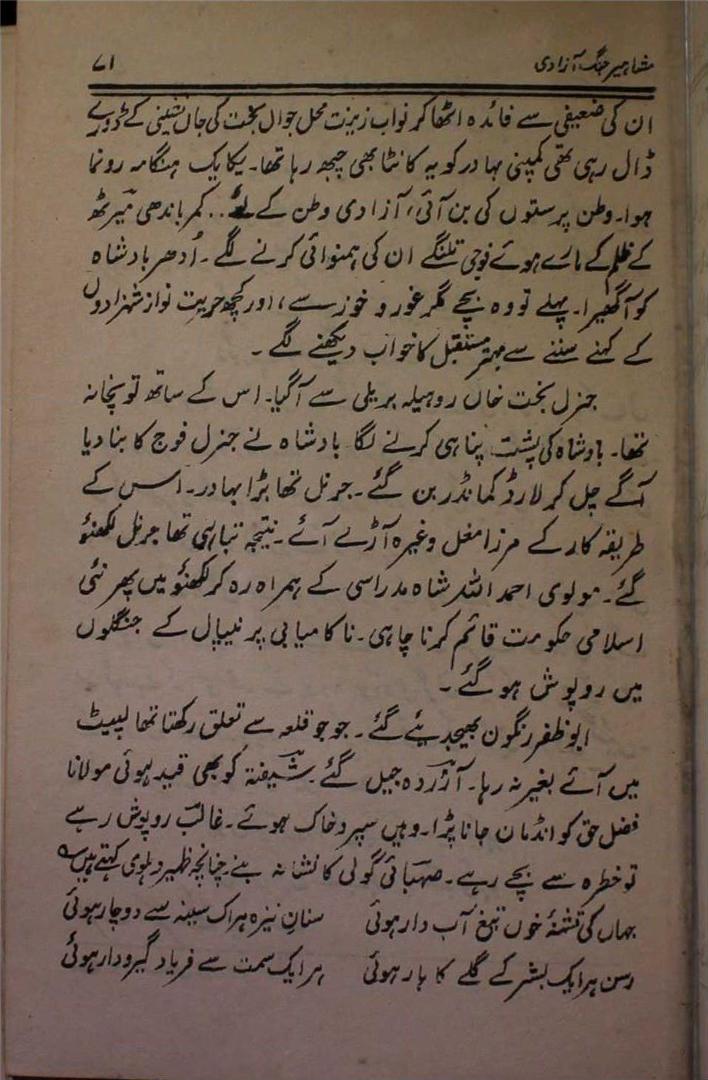 مشاہیر جنگ آزادی ۷۱
ان کی ضعیفی سے فائدہ اٹھا کر نواب زینت محل جواں بخت کی جاں نشینی کے ڈورے
ڈال رہی تھی کمپنی بہادر کو یہ کانٹا بھی چبھ رہا تھا۔ یکایک ہنگامہ رونما
ہوا۔ وطن پرستوں کی بن آئی، آزادی وطن کے لئے.. کمر باندھی میرٹھ
کے ظلم کے مارے ہوئے فوجی تلنگے ان کی ہمنوائی کرنے لگے۔ اُدھر بادشاہ
کو آگھیرا۔ پہلے تو وہ بچے مگر غور و خوز سے، اور کچھ حریت نواز شہزادوں
کے کہنے سننے سے بہتر مستقبل کا خواب دیکھنے لگے۔
جنرل بخت خاں روہیلہ بریلی سے آگیا۔ اس کے ساتھ توپخانہ
تھا۔ بادشاہ کی پشت پناہی کرنے لگا بادشاہ نے جنرل فوج کا بنا دیا
آگے چل کر لارڈ کمانڈر بن گئے۔ جرنل تھا بڑا بہادر۔ اس کے
طریقہ کار کے مرزا مغل وغیرہ آڑے آئے۔ نتیجہ تباہی تھا جرنل لکھنؤ
گئے۔ مولوی احمد اللہ شاہ مدراسی کے ہمراہ رہ کر لکھنؤ میں پھر نئی
اسلامی حکومت قائم کرنا چاہی۔ ناکامیابی پر نیپال کے جنگلوں
میں روپوش ہو گئے۔
ابوظفر رنگون بھیجدیئے گئے۔ جو جو قلعہ سے تعلق رکھتا تھا لپیٹ
میں آئے بغیر نہ رہا۔ آزردہ جیل گئے شیفتہ کو بھی قید ہوئی مولانا
فضل حق کو انڈمان جانا پڑا۔ وہیں سپرد خاک ہوئے۔ غالب روپوش رہے
تو خطرہ سے بچے رہے۔ صہبائی گولی کا نشانہ بنے چنانچہ ظہیر دہلوی کہتے ہیں ؎
جہاں کی تشنۂ خوں تیغ آب دار ہوئی سنان نیزہ ہر اک سینہ سے دوچار ہوئی
رسن ہر ایک بشر کے گلے کا ہار ہوئی ہر ایک سمت سے فریاد گیر و دار ہوئی